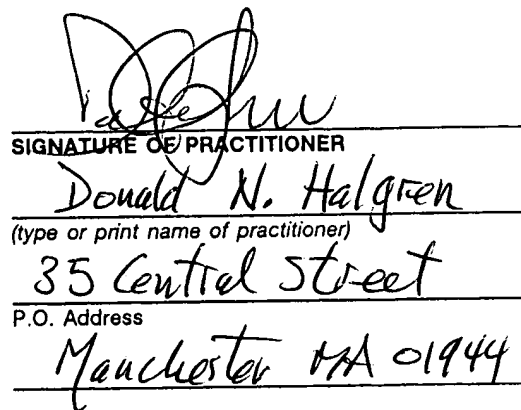 SIGNATURE OF PRACTITIONER
Donald N. Halgren
(type or print name of practitioner)
35 Central Street
P.O. Address
Manchester MA 01944